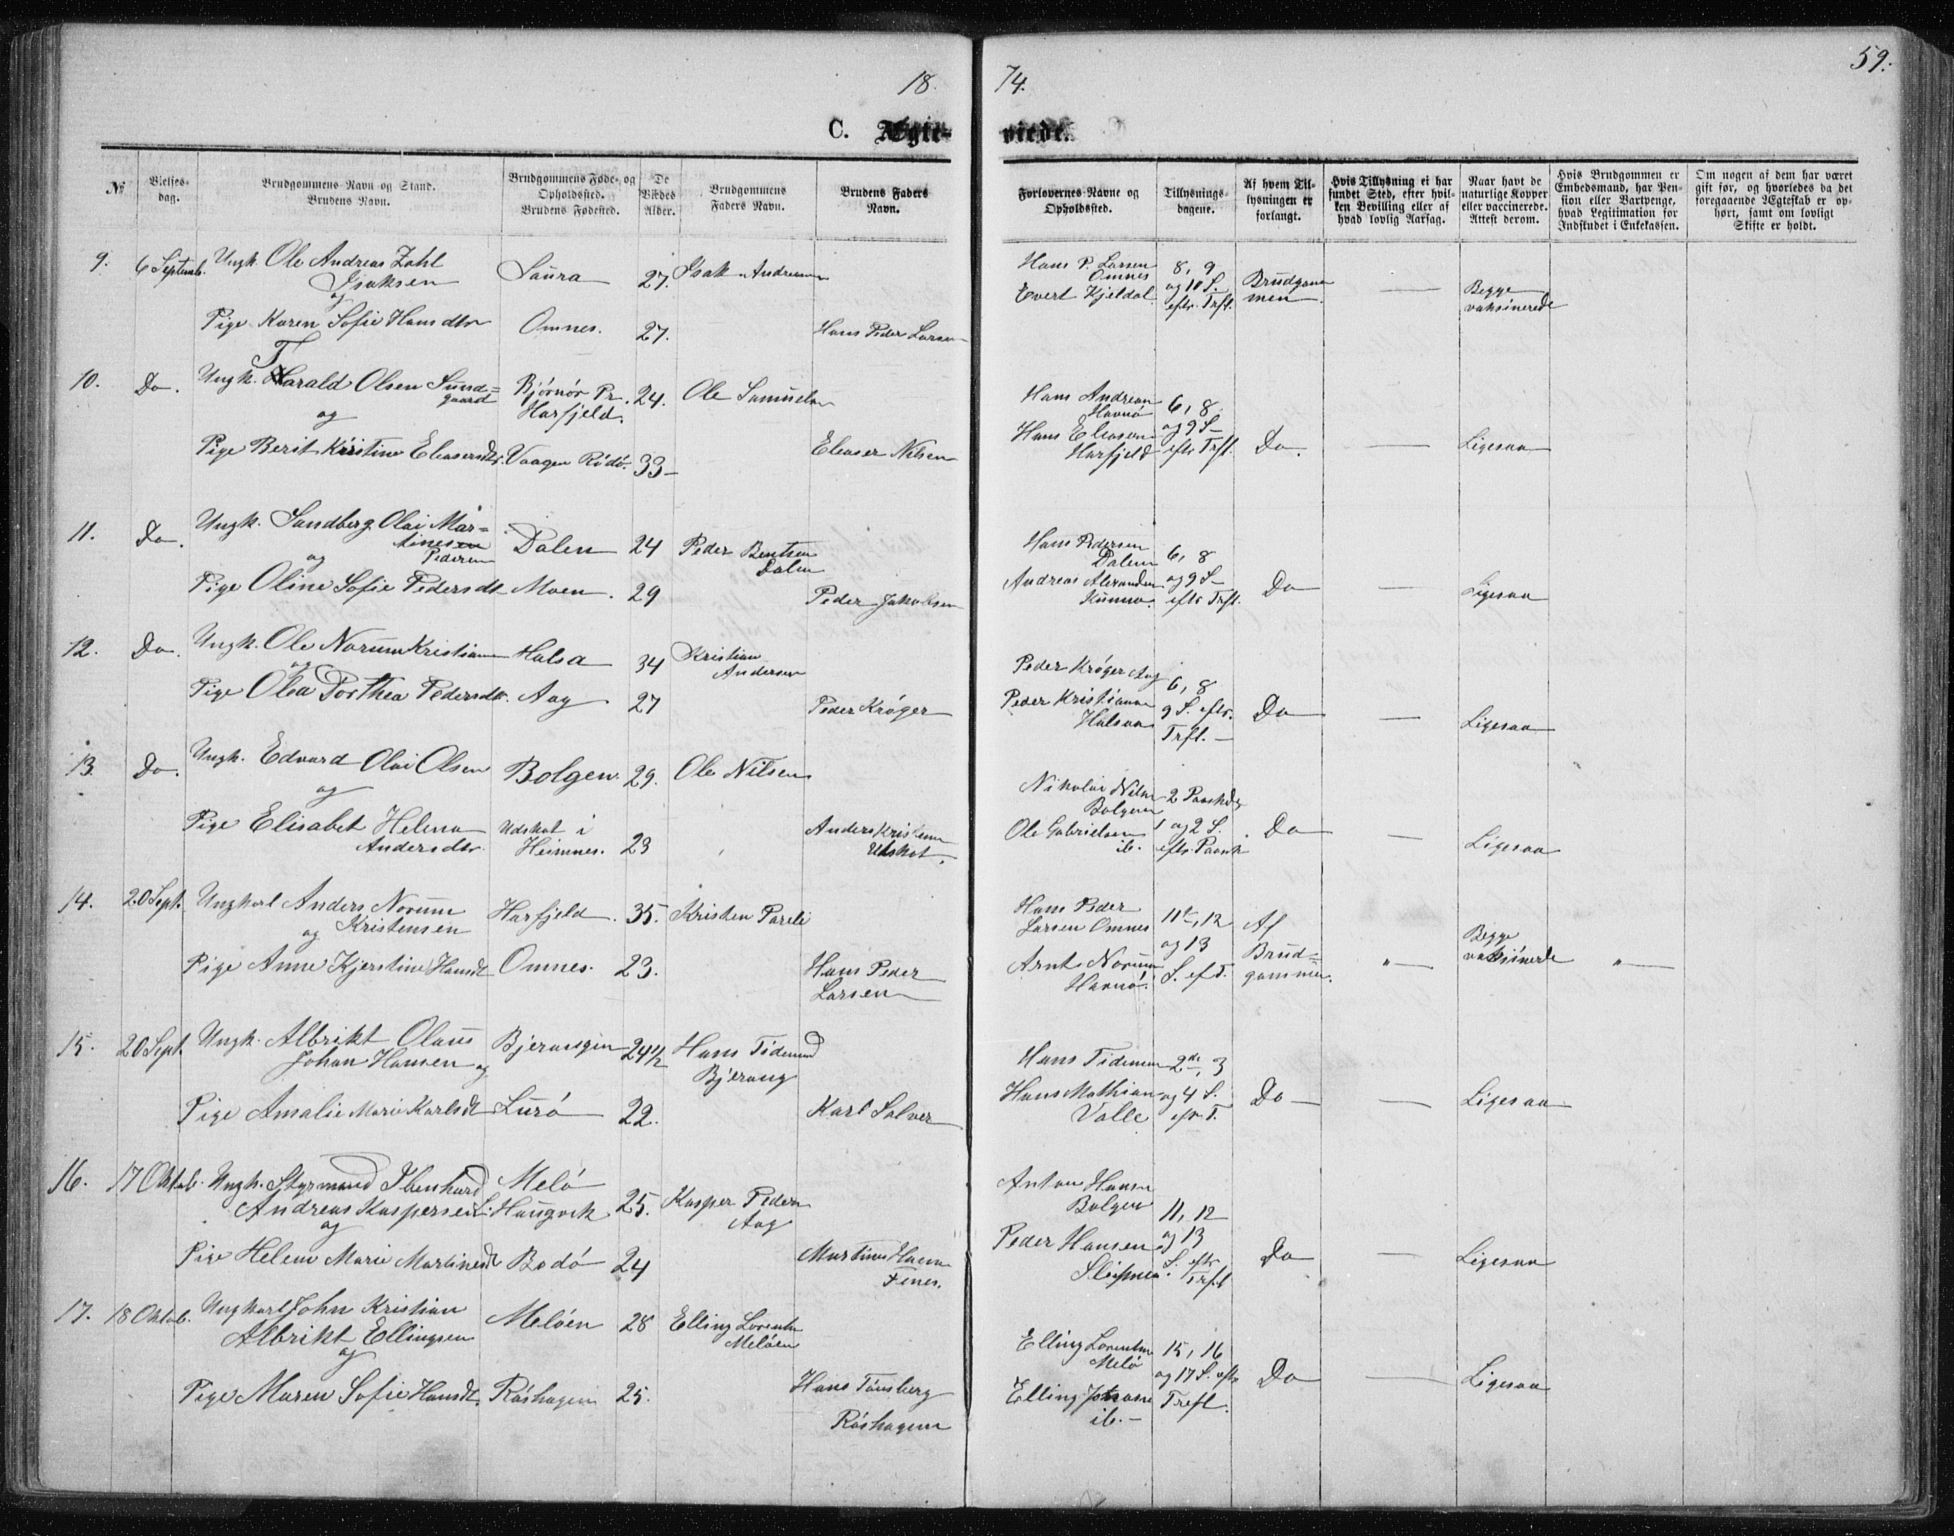 59.
18 74.
C. Ægte- viede.
№
Vielses-dag.
Brudgommens Navn og Stand.
Brudens Navn.
Brudgommens Føde- og Opholdssted.
Brudens Fødested.
De Viedes Alder.
Brudgommens Faders Navn.
Brudens Faders Navn.
Forlovernes Navne og Opholdssted.
Tillysnings-dagene.
Af hvem Til-lysningen er forlangt.
Hvis Tillysning ei har fundet Sted, efter hvil-ken Bevilling eller af hvad lovlig Aarsag.
Naar havt de naturlige Kopper eller vaccinerede. Attest derom.
Hvis Brudgommen er Embedsmand, har Pen-sion eller Vartpenge, hvad Legitimation for Indskudet i Enkekassen.
Om nogen af dem har været gift før, og hvorledes da det foregaaende Ægteskab er op-hørt, samt om lovligt Skifte er holdt.
9. 6 Septemb. Ungk. Ole Andreas Zahl Saura 27. Isak Andreasen
Isaksen
og
Pige Karen Sofie Hansdtr Omnes. 27. Hans Peder Larsen
Hans P. Larsen 8, 9
Omnes og 10 S. Brudgom-
Evert Kjeldal eftr. Trft. men. — Begge
vaksinerede
10. Do. Ungk. Tarald Olsen Sund= Bjørnør Pr. 24. Ole Samuelsen
gaard Harfjeld.
og
Pige Berit Kristine Eleasersdtr. Vaagen Rødø. 33— Eleaser Nilsen
Hans Andreasen
Havnø 6, 8
Hans Eleasen og 9 S—
Harfjeld eftr Trft. Do. — Ligesaa
11. Do. Ungk. Sandberg Olai Mar=
tinesen Dalen 24 Peder Bentsen
og Pedersen Dalen
Pige Oline Sofie Pedersdt Moen. 29 Peder Jakobsen
Hans Pedersen
Dalen 6, 8
Andreas Alexander og 9 S—
Kunna. eftr Trft. Do — Ligesaa
12. Do. Ungk. Ole Norum Kristiansen Halsa 34 Kristian
og Andersen
Pige Olea Dorthea Pedersdtr. Aag 27 Peder Krøger
Peder Krøger Aag 6, 8
Peder Kristiansen 9 S. eftr.
Halsaa Trft.— Do — Ligesaa
13. Do. Ungk. Edvard Olai Olsen Bolgen 29. Ole Nilsen
og
Pige Elisabet Helena Udskot i Anders Kristensen
Andersdtr. Heimnes. 23 Udskot.
Nikolai Nilsen 2 Paaskdg
Bolgen
Ole Gabrielsen 1 og 2 S.
ib. eftr. Paask. Do — Ligesaa
14. 20 Sept. Ungkarl Anders Norum Harfjeld. 35. Kristen Pareli
og Kristensen
Pige Anne Kjerstine Hansdt Omnes. 23. Hans Peder
Larsen
Hans Peder
Larsen Omnes 11te, 12 Af
og 13 Brud= Begge
Arnt Norum S. ef T. gommen. „— vaksinerde „—
Havnø.
15. 20 Sept. Ungk. Albrikt Olaus Bjerangen 24½ Hans Tidemand
Johan Hansen og Bjerang
Pige Amalie Marie Karlsdt Lurø 22. Karl Salver
Hans Tidemann 2de, 3
Hans Mathias og 4 S. Do — Ligesaa
Valle eftr. T.
16. 17 Oktob. Ungk. Styrmand Ibenhard Melø
Andreas Kaspersen Haugvik 25. Kasper Pedersen
og Aag
Pige Helene Marie Martinesdt Bodø 24 Martinus Hansen
Fenes.
Anton Hansen
Bolgen 11, 12
Peder Hansen og 13
S. eftr Do — Ligesaa
Trft
17. 18 Oktob. Ungkarl John Kristian Meløen 28 Elling Lorentsen
Albrikt Ellingsen Meløen
og
Pige Maren Sofie Hansdt. Røshagen 25. Hans Tønsberg
Røshagen
Elling Lorentsen 15, 16
Melø og 17 S. eftr Do — Ligesaa
Elling Johnsen Treft.
ib.—